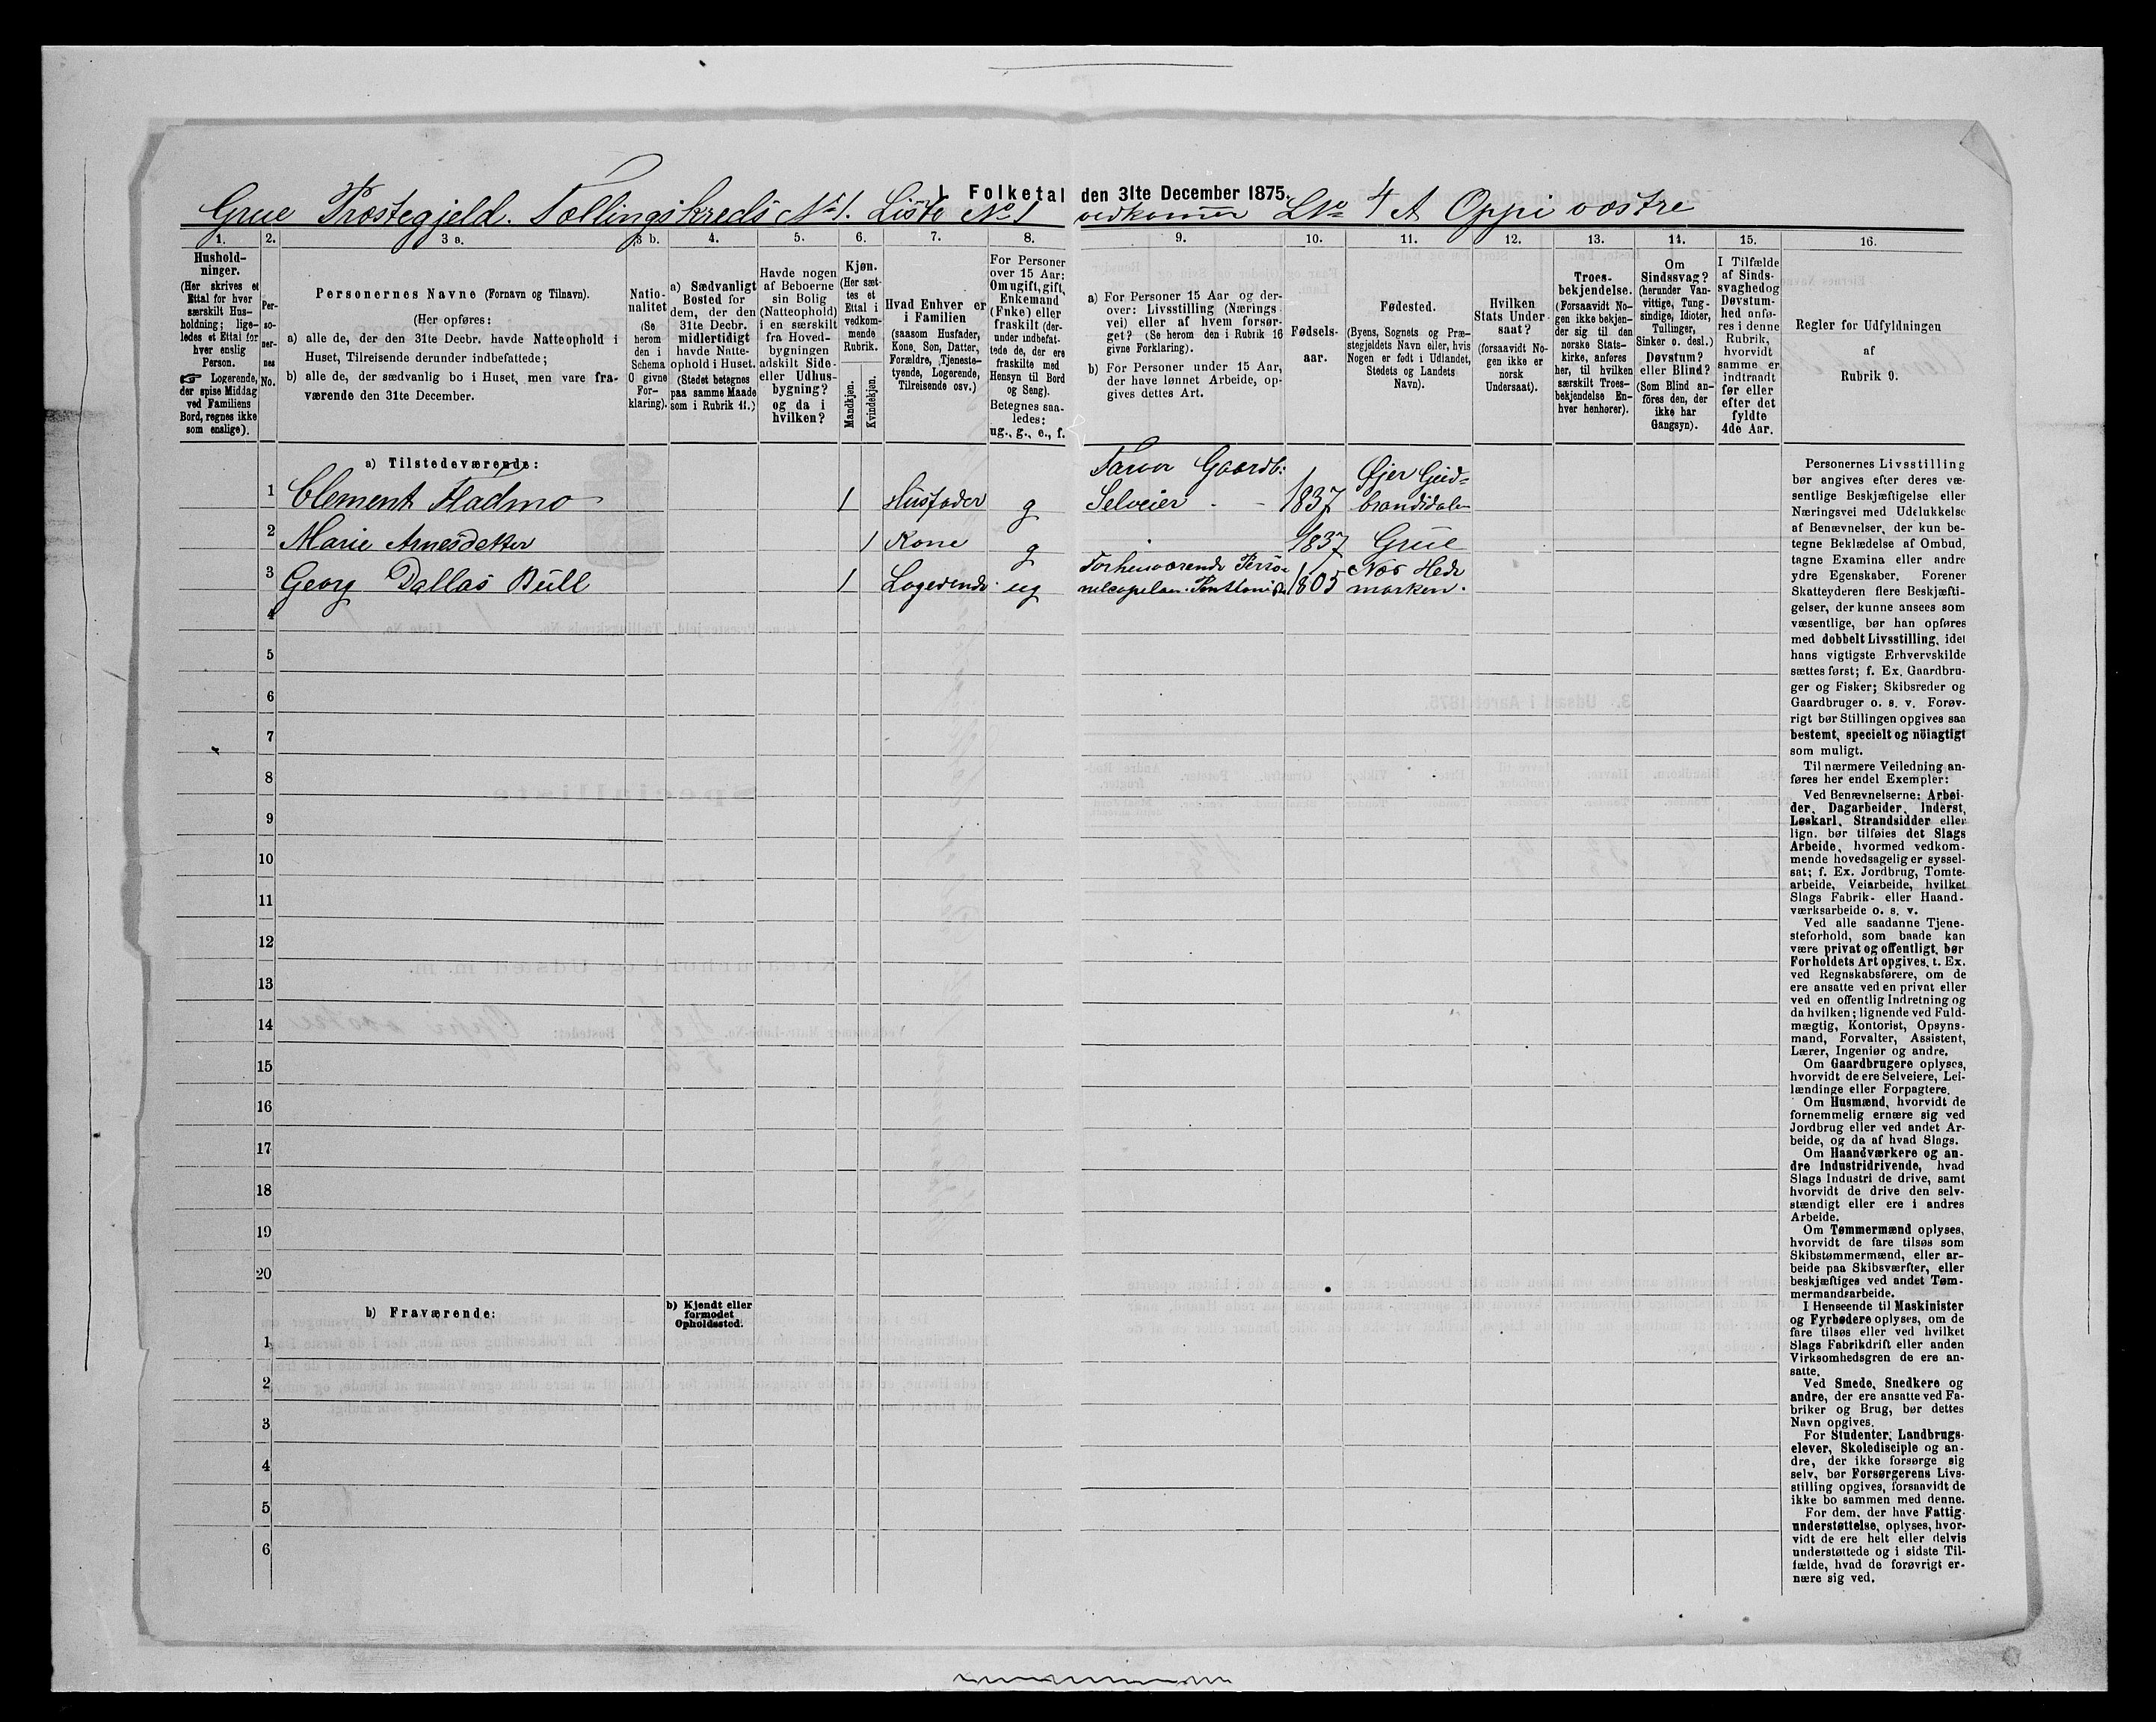 I. Folketal den 31te December 1875.
Grue Præstegjeld. Tællingskreds No 1. Liste No 1 vedkommer LNo 4 A Oppi væstre
1. 2. 3 a. 3 b. 4. 5. 6. 7. 8. 9. 10. 11. 12. 13. 14. 15. 16.
Hushold-
ninger.
(Her skrives et
Ettal for hver
særskilt Hus-
holdning; lige-
ledes et Ettal for
hver enslig
Person.
Logerende,
der spise Middag
ved Familiens
Bord, regnes ikke
som enslige).
Per-
so-
ner-
nes
No.
Personernes Navne (Fornavn og Tilnavn).
(Her opføres:
a) alle de, der den 31te Decbr. havde Natteophold i
Huset, Tilreisende derunder indbefattede;
b) alle de, der sædvanlig bo i Huset, men vare fra-
værende den 31te December.
Natio-
nalitet
(Se
herom
den i
Schema
O givne
For-
klaring).
a) Sædvanligt
Bosted for
dem, der den
31te Decbr.
midlertidigt
havde Natte-
ophold i Huset.
(Stedet betegnes
paa samme Maade
som i Rubrik 11.)
Havde nogen
af Beboerne
sin Bolig
(Natteophold)
i en særskilt
fra Hoved-
bygningen
adskilt Side-
eller Udhus-
bygning?
og da i
hvilken?
Kjøn.
(Her sæt-
tes et
Ettal i
vedkom-
mende
Rubrik.
Mandkjøn.
Kvindekjøn.
Hvad Enhver er
i Familien
(saasom Husfader,
Kone, Søn, Datter,
Forældre, Tjeneste-
tyende, Logerende,
Tilreisende osv.)
For Personer
over 15 Aar:
Om ugift, gift,
Enkemand
(Enke) eller
fraskilt (der-
under indbefat-
tede de, der ere
fraskilte med
Hensyn til Bord
og Seng).
Betegnes saa-
ledes:
ug., g., e., f.
a) For Personer 15 Aar og der-
over: Livsstilling (Nærings
vei) eller af hvem forsør-
get? (Se herom den i Rubrik 16
givne Forklaring).
b) For Personer under 15 Aar,
der have lønnet Arbeide, op-
gives dettes Art.
Fødsels-
aar.
Fødested.
(Byens, Sognets og Præ-
stegjeldets Navn eller, hvis
Nogen er født i Udlandet,
Stedets og Landets
Navn).
Hvilken
Stats Under-
saat?
(forsaavidt No-
gen ikke er
norsk
Undersaat).
Troes-
bekjendelse.
(Forsaavidt No-
gen ikke bekjen-
der sig til den
norske Stats-
kirke, anføres
her, til hvilken
særskilt Troes-
bekjendelse En-
hver henhører).
Om
Sindssvag?
(herunder Van-
vittige, Tung-
sindige, Idioter,
Tullinger,
Sinker o. desl.)
Døvstum?
eller Blind?
(Som Blind an-
føres den, der
ikke har
Gangsyn).
I Tilfælde
af Sinds-
svaghed og
Døvstum-
hed anfø-
res i denne
Rubrik,
hvorvidt
samme er
indtraadt
før eller
efter det
fyldte
4de Aar.
Regler for Udfyldningen
af
Rubrik 9.
a) Tilstedeværende:
1 Clement Fladmo 1 Husfader g Farver Gaardb: Selveier 1837 Øjer Gud-
brandsdalen
2 Marie Arnesdatter 1 Kone g 1837 Grue
3 Georg Dallas Bull 1 Logerende ug Forhenværende Perso-
nelcapelan 1805 Næs Hede
marken.
4
5
6
7
8
9
10
11
12
13
14
15
16
17
18
19
20
b) Fraværende:
b) Kjendt eller
formodet
Opholdssted.
1
2
3
4
5
6
Personernes Livsstilling
bør angives efter deres væ-
sentlige Beskjæftigelse eller
Næringsvei med Udelukkelse
af Benævnelser, der kun be-
tegne Beklædelse af Ombud,
tagne Examina eller andre
ydre Egenskaber. Forener
Skatteyderen flere Beskjæfti-
gelser, der kunne ansees som
væsentlige, bør han opføres
med dobbelt Livsstilling, idet
hans vigtigste Erhvervskilde
sættes først; f. Ex. Gaardbru-
ger og Fisker; Skibsreder og
Gaardbruger o. s. v. Forøv-
rigt bør Stillingen opgives saa
bestemt, specielt og nöiagtigt
som muligt.
Til nærmere Veiledning an-
føres her endel Exempler:
Ved Benævnelserne: Arbei-
der, Dagarbeider, Inderst,
Løskarl, Strandsidder eller
lign. bør tilføies det Slags
Arbeide, hvormed vedkom-
mende hovedsagelig er syssel-
sat; f. Ex. Jordbrug, Tomte-
arbeide, Veiarbeide, hvilket
Slags Fabrik- eller Haand-
værksarbeide o. s. v.
Ved alle saadanne Tjene-
steforhold, som baade kan
være privat og offentligt, bør
Forholdets Art opgives, t. Ex.
ved Regnskabsførere, om de
ere ansatte ved en privat eller
ved en offentlig Indretning og
da hvilken; lignende ved Fuld-
mægtig, Kontorist, Opsyns-
mand, Forvalter, Assistent,
Lærer, Ingeniør og andre.
Om Gaardbrugere oplyses,
hvorvidt de ere Selveiere, Lei-
lændinge eller Forpagtere.
Om Husmænd, hvorvidt de
fornemmelig ernære sig ved
Jordbrug eller ved andet Ar-
beide, og da af hvad Slags.
Om Haandværkere og an-
dre Industridrivende, hvad
Slags Industri de drive, samt
hvorvidt de drive den selv-
stændigt eller ere i andres
Arbeide.
Om Tømmermænd oplyses,
hvorvidt de fare tilsøs som
Skibstømmermænd, eller ar-
beide paa Skibsværfter, eller
beskjæftiges ved andet Tøm-
mermandsarbeide.
I Henseende til Maskinister
og Fyrbødere oplyses, om de
fare tilsøs eller ved hvilket
Slags Fabrikdrift eller anden
Virksomhedsgren de ere an-
satte.
Ved Smede, Snedkere og
andre, der ere ansatte ved Fa-
briker og Brug, bør dettes
Navn opgives.
For Studenter, Landbrugs-
elever, Skoledisciple og an-
dre, der ikke forsørge sig
selv, bør Forsørgerens Livs-
stilling opgives, forsaavidt de
ikke bo sammen med denne.
For dem, der have Fattig-
understøttelse, oplyses, hvor-
vidt de ere helt eller delvis
understøttede og i sidste Til-
fælde, hvad de forøvrigt er-
nære sig ved.